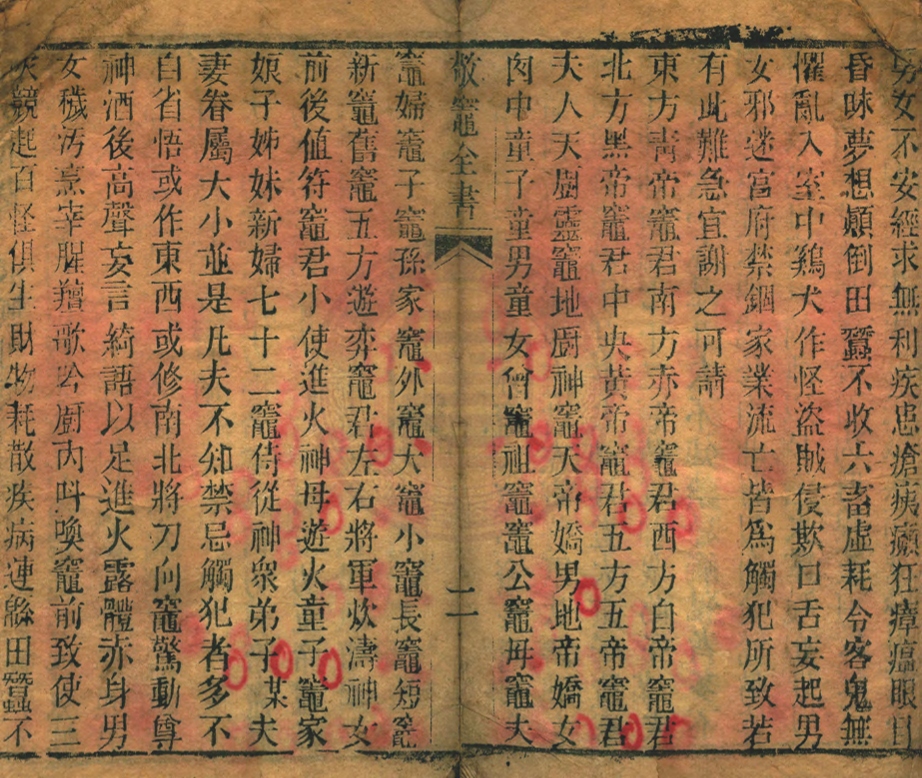 男女不安經求無利疾患瘡病癲狂瘴瘟眼目
昏昧夢想顛倒田蠶不收六畜虛耗令客鬼無
懼亂入室中鷄犬作怪盜賊侵欺口舌妄起男
女邪迷宮府禁錮家業流亡皆爲觸犯所致若
有此難急宜謝之可請
東方青帝竈君南方赤帝竈君西方白帝竈君
北方黑帝竈君中央黃帝竈君五方五帝竈君
夫人天廚靈竈地廚神竈天帝嬌男地帝嬌女
囪中童子童男童女曾竈祖竈竈公竈母竈夫
敬竈全書
二
竈婦竈子竈孫家竈外竈大竈小竈長竈短竈
新竈舊竈五方遊弈竈君左右將軍炊濤神女
前後値符竈君小使進火神母遊火童子竈家
娘子姊妹新婦七十二竈侍從神衆弟子某夫
妻眷屬大小並是凡夫不知禁忌觸犯者多不
自省悟或作東西或修南北將刀向竈驚動尊
神酒後高聲妄言綺語以足進火露體赤身男
女穢汚烹宰腥羶歌吟廚內呌喚竈前致使三
灾競起百怪俱生財物耗散疾病連緜田蠶不